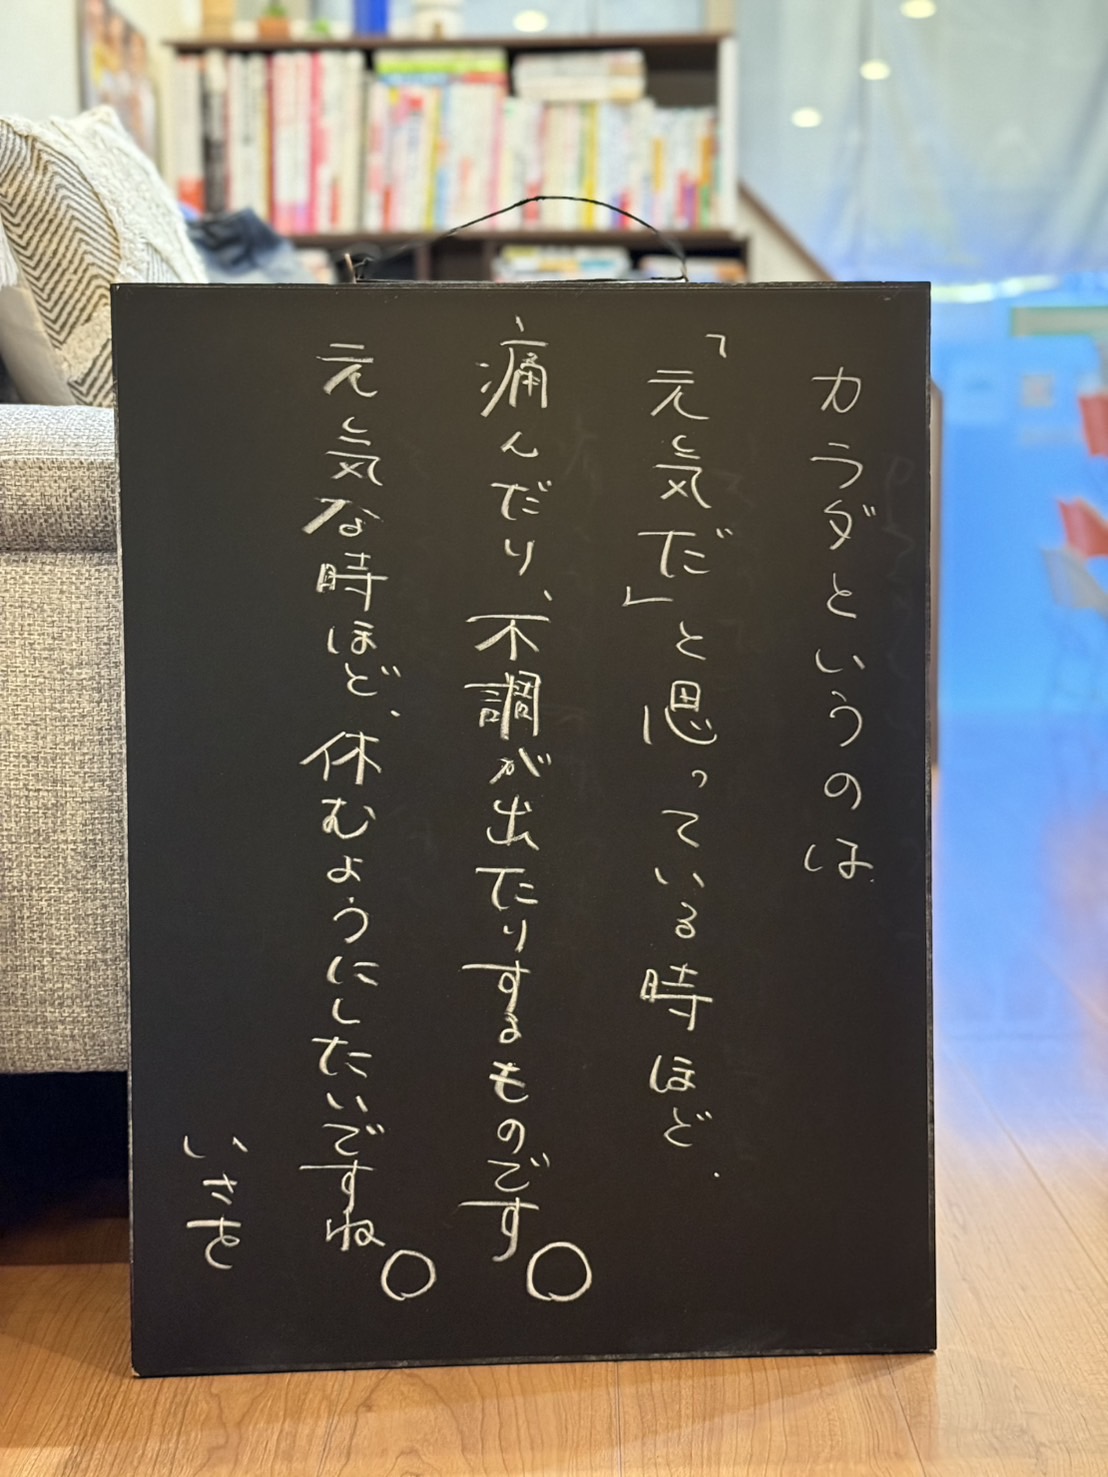 カラダというのは、
「元気だ」と思っている時ほど、
痛んだり、不調が出たりするものです。
元気な時ほど、休むようにしたいですね。
いさを